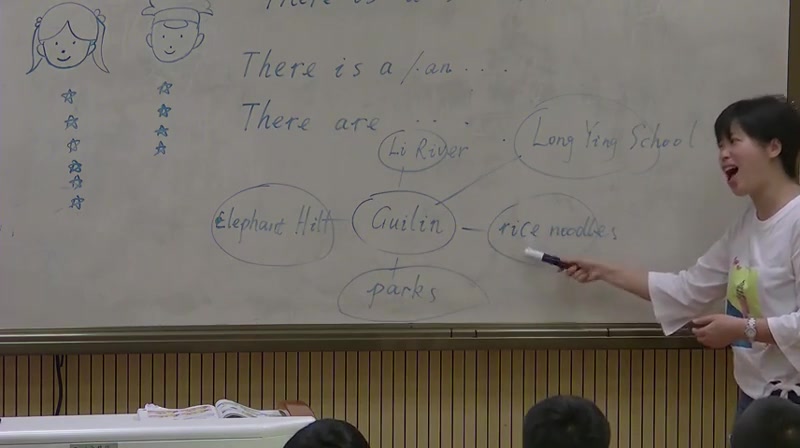 There is a
There is a / an ....
There are ....
Li River
Long Ying School
Elephant Hill
Guilin
rice noodles
parks